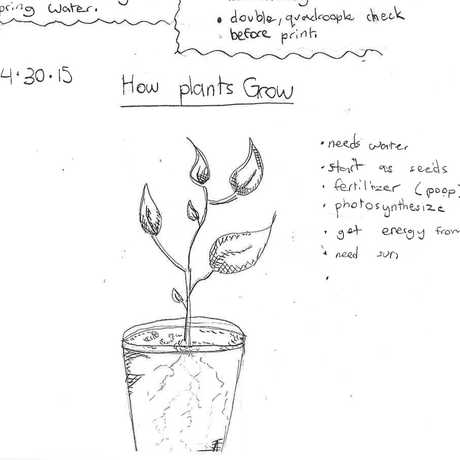 pring water.
• double, quadroople check
• before print.
4.30.15
How plants Grow
• needs water
• start as seeds
• fertilizer (poop)
• photosynthesize
• get energy from
• need sun
•